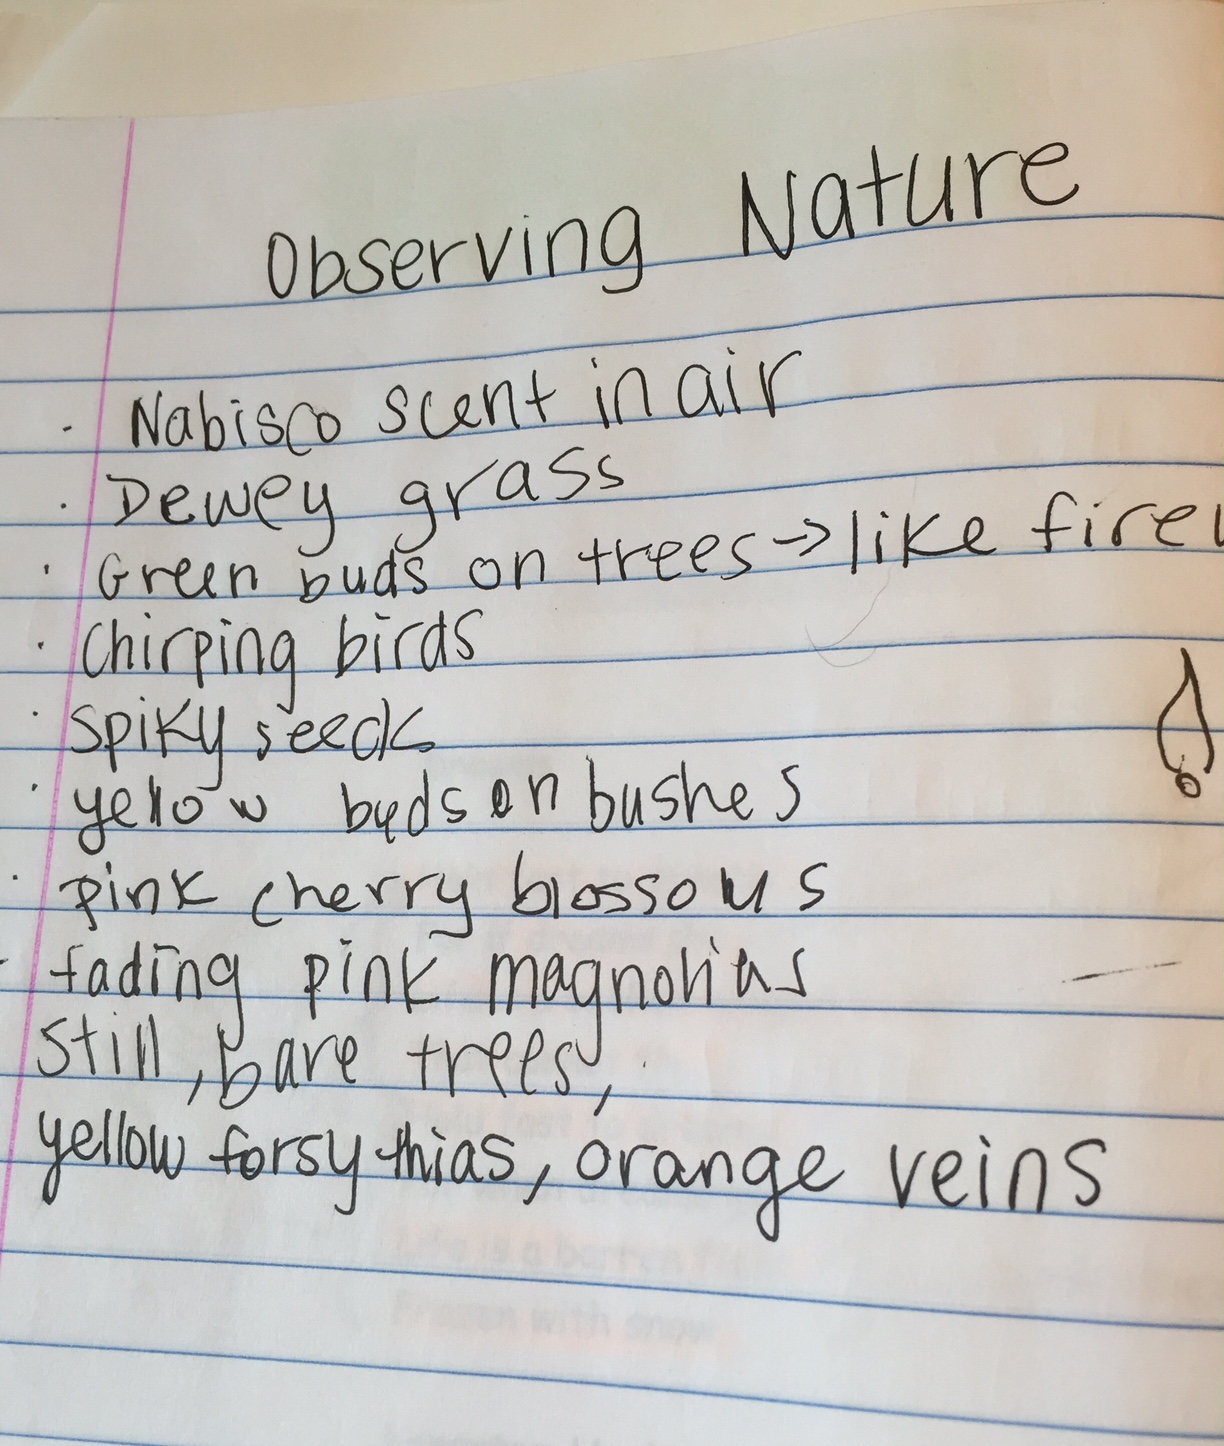 Observing Nature
· Nabisco scent in air
· Dewey grass
· Green buds on trees → like
· Chirping birds
· Spiky seeds
· yellow buds on bushes
· pink cherry blossoms
- fading pink magnolias
still, bare trees,
yellow forsythias, orange veins
Life is a barren
Frozen with snow